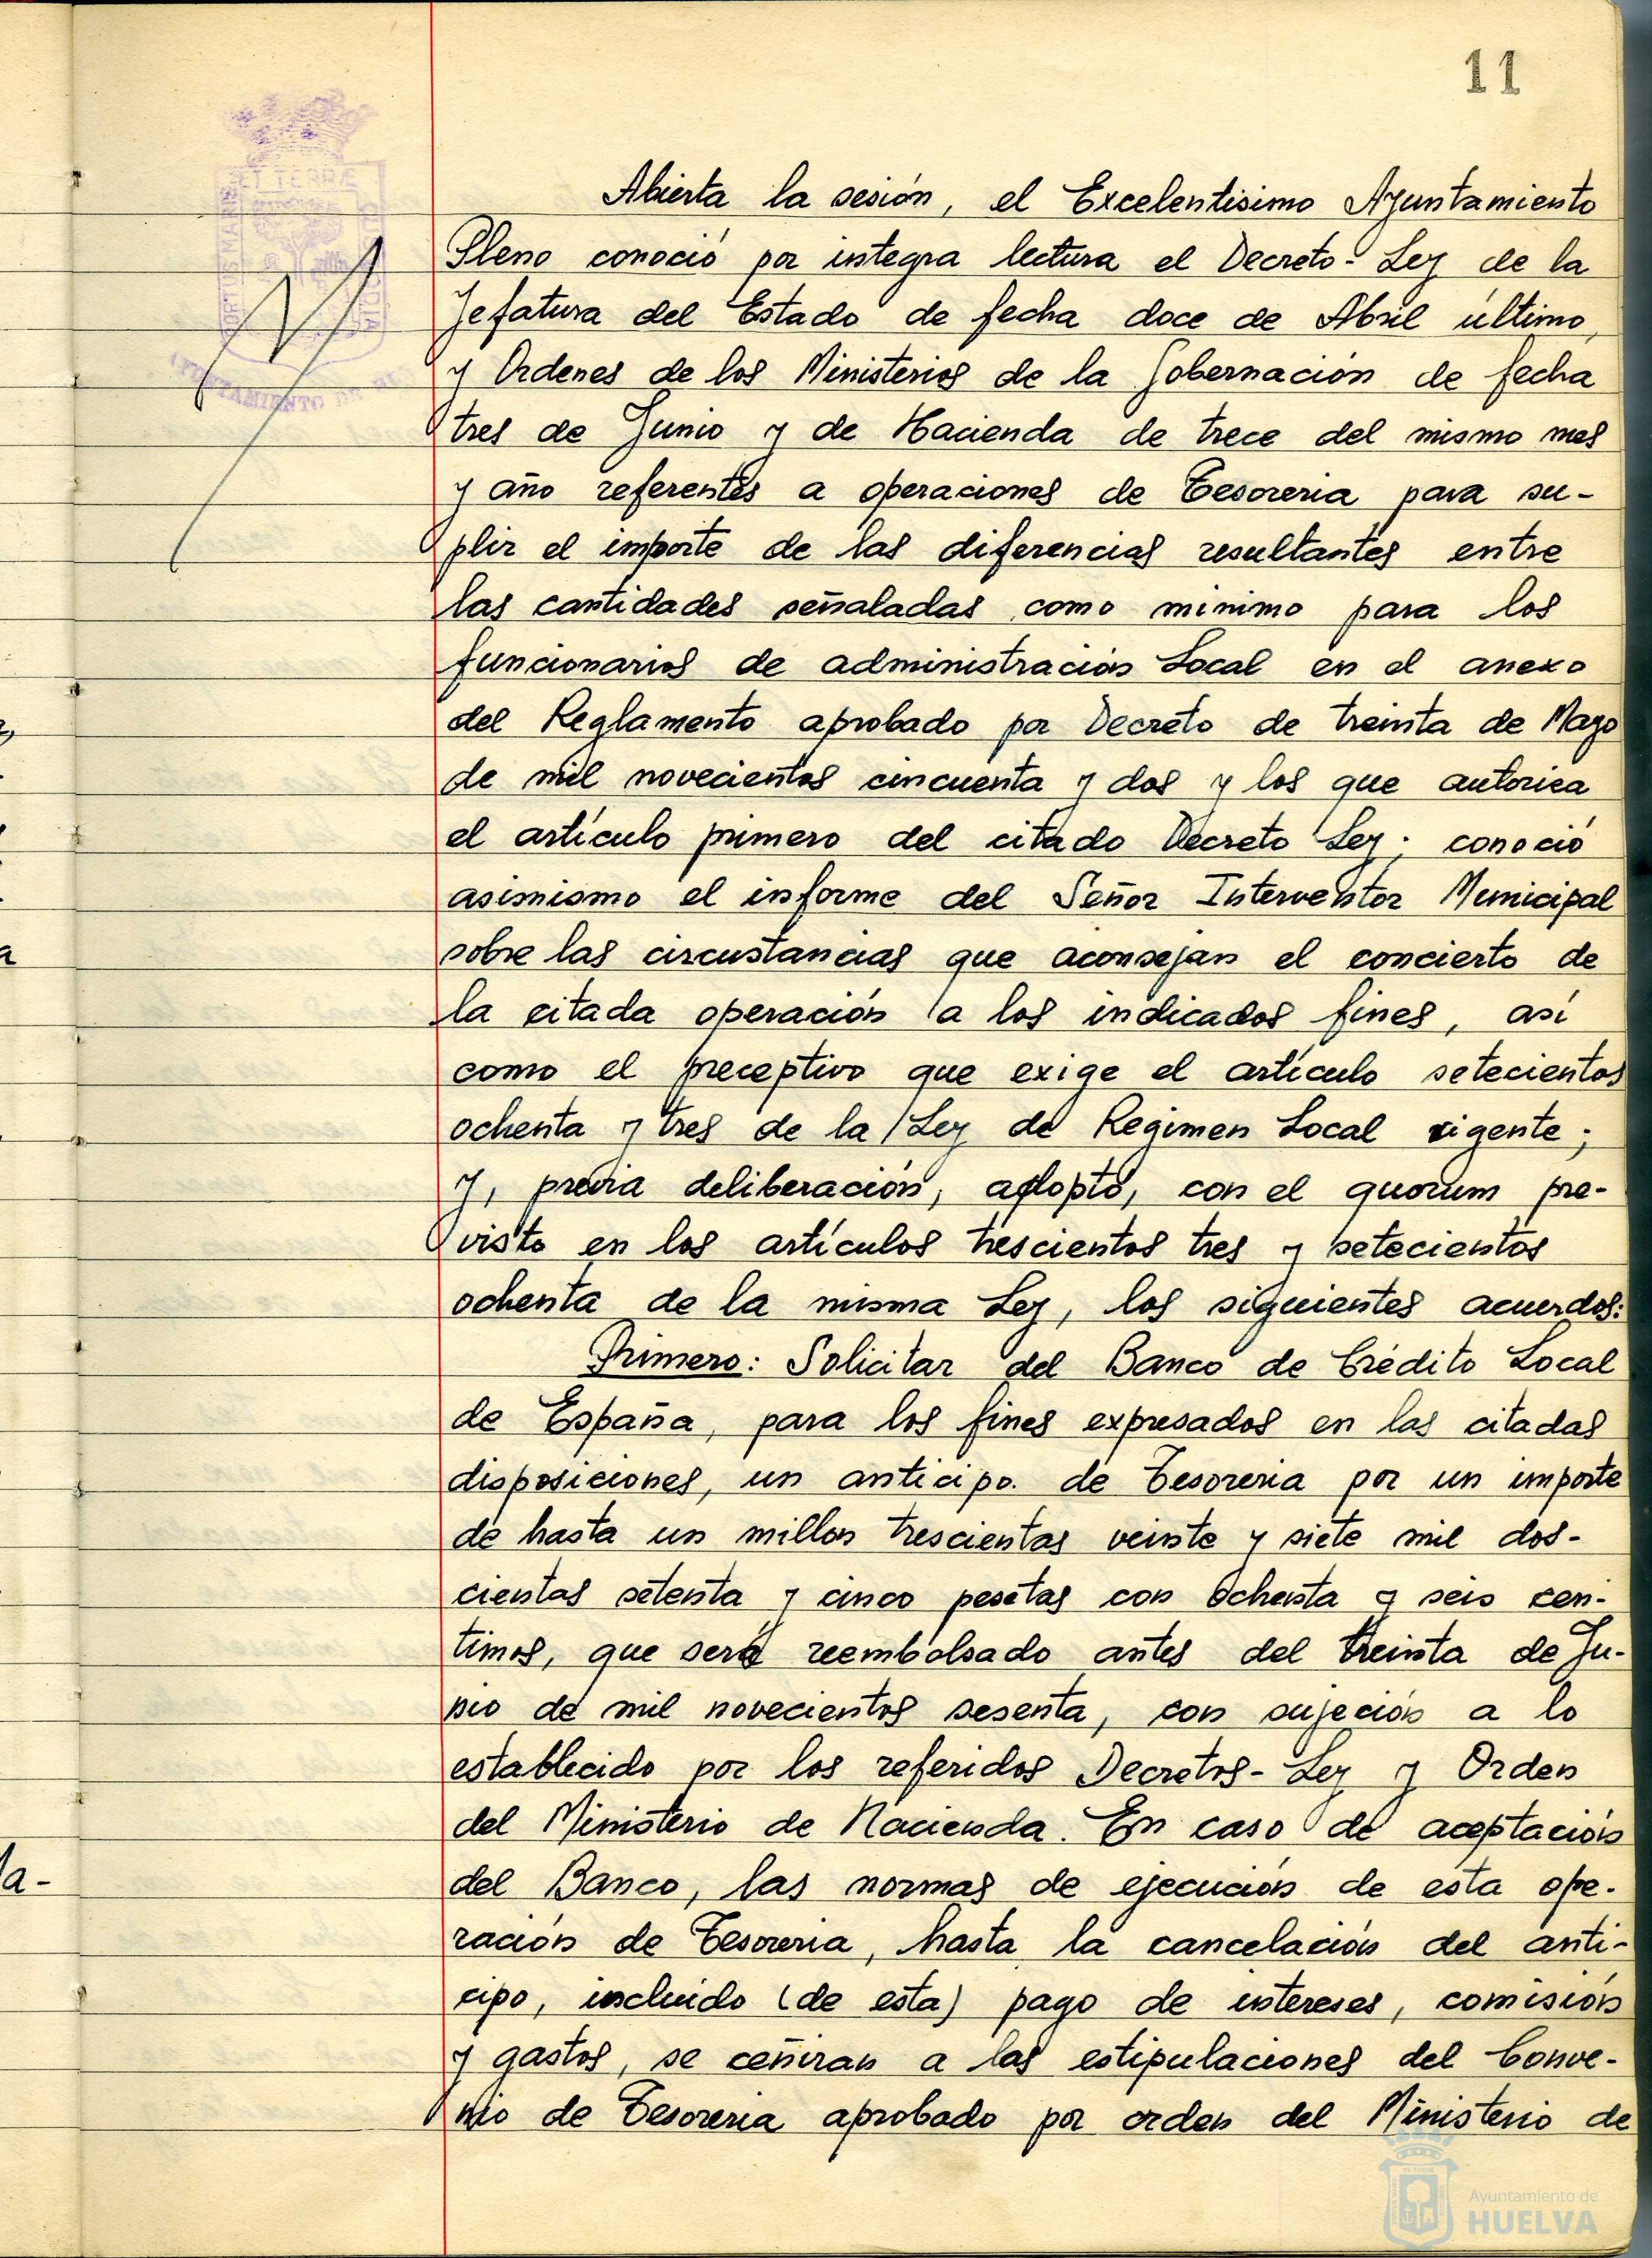 11
Abierta la sesión, el Excelentisimo Ayuntamiento
Pleno conoció por integra lectura el Decreto-Ley de la
Jefatura del Estado de fecha doce de Abril último,
y Ordenes de los Ministerios de la Gobernación de fecha
tres de Junio y de Hacienda de trece del mismo mes
y año referentes a operaciones de Tesoreria para su-
plir el importe de las diferencias resultantes entre
las cantidades señaladas como minimo para los
funcionarios de administración Local en el anexo
del Reglamento aprobado por Decreto de treinta de Mayo
de mil novecientos cincuenta y dos y los que autoriza
el artículo primero del citado Decreto Ley; conoció
asimismo el informe del Señor Interventor Municipal
sobre las circustancias que aconsejan el concierto de
la citada operación a los indicados fines, así
como el preceptivo que exige el artículo setecientos
ochenta y tres de la Ley de Regimen Local vigente;
y, previa deliberación, adoptó, con el quorum pre-
visto en los artículos trescientos tres y setecientos
ochenta de la misma Ley, los siguientes acuerdos:
Primero: Solicitar del Banco de Crédito Local
de España, para los fines expresados en las citadas
disposiciones, un anticipo. de Tesoreria por un importe
de hasta un millon trescientas veinte y siete mil dos-
cientas setenta y cinco pesetas con ochenta y seis cen-
timos, que será reembolsado antes del treinta de Ju-
nio de mil novecientos sesenta, con sujeción a lo
establecido por los referidos Decretos-Ley y Orden
del Ministerio de Hacienda. En caso de aceptación
del Banco, las normas de ejecución de esta ope-
ración de Tesoreria, hasta la cancelación del anti-
cipo, incluido (de esta) pago de intereses, comisión
y gastos, se ceñiran a las estipulaciones del Conve-
nio de Tesoreria aprobado por orden del Ministerio de
la-
PORTUS MARIS
ET TERRÆ
CUSTODIA
AYUNTAMIENTO DE
Ayuntamiento de
HUELVA